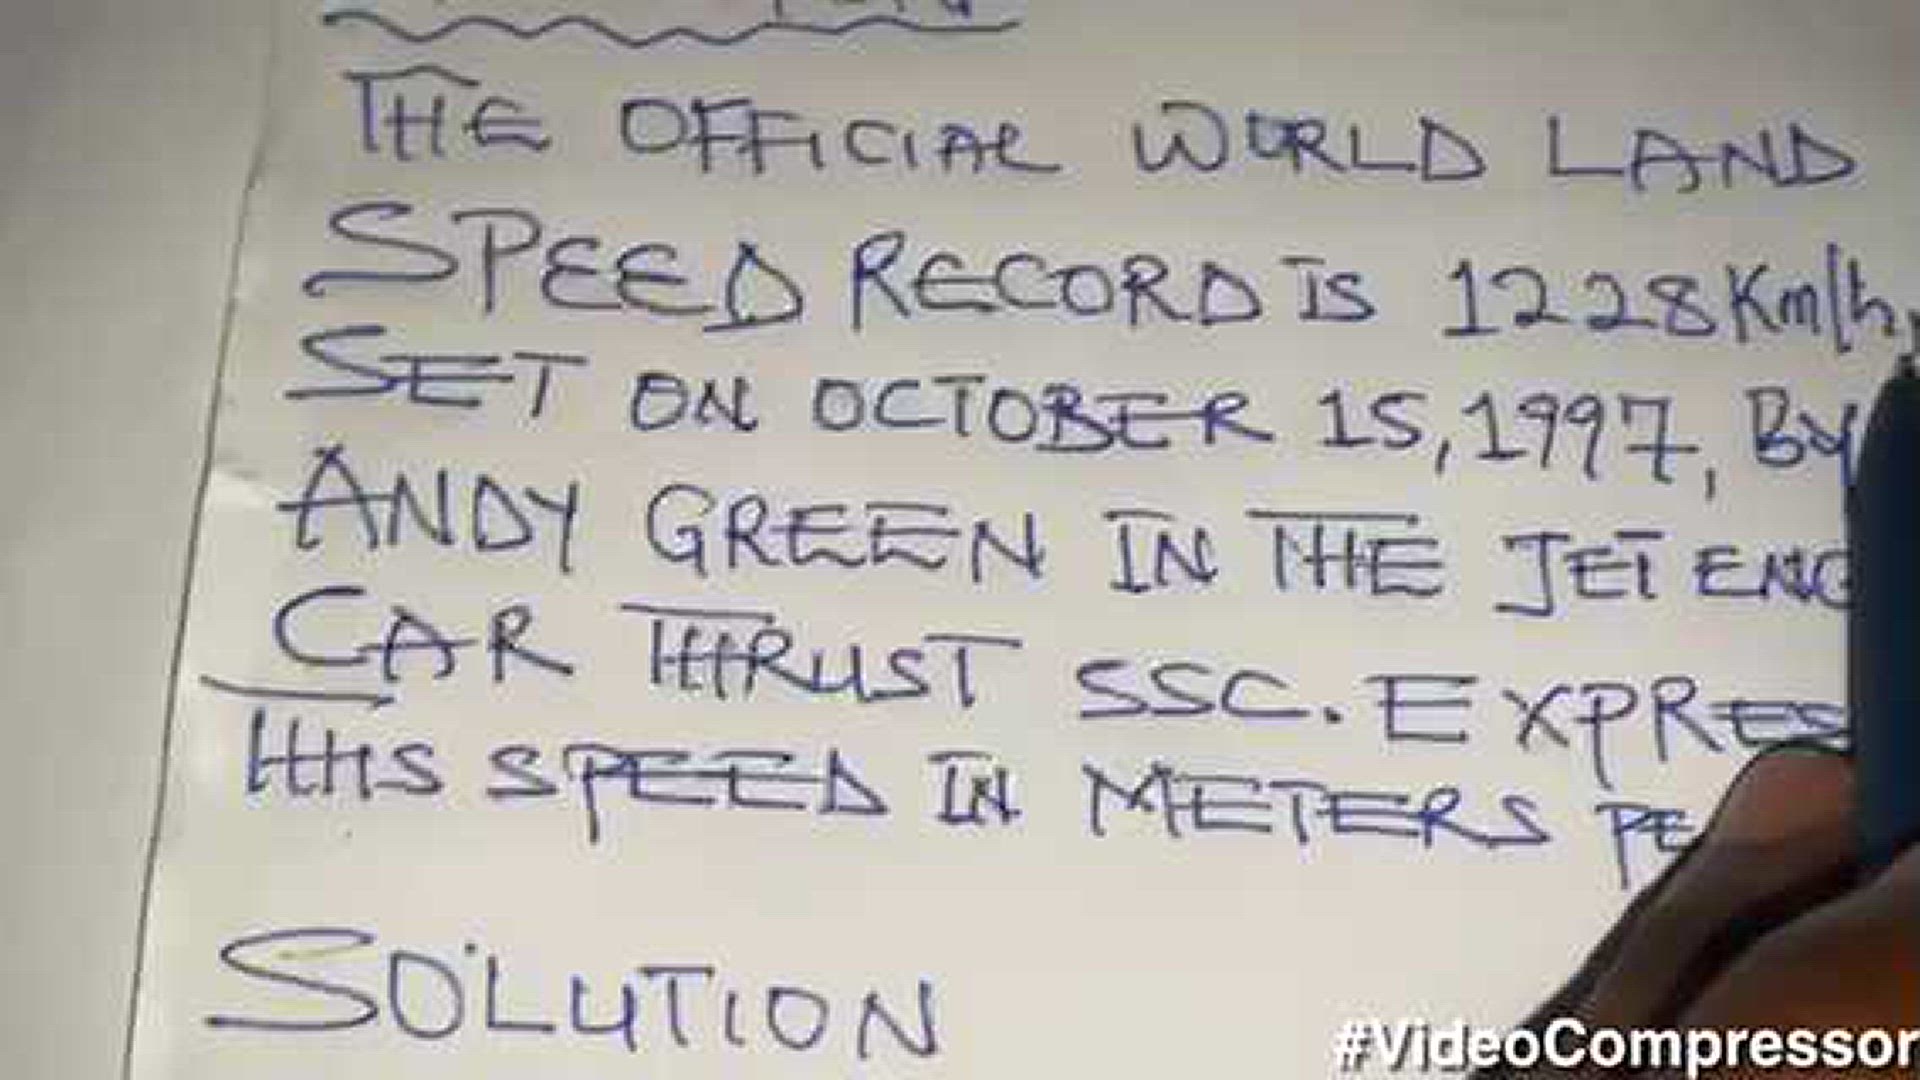 THE OFFICIAL WORLD LAND
SPEED RECORD IS 1228 Km/h,
SET ON OCTOBER 15, 1997, By
ANDY GREEN IN THE JET ENG
CAR THRUST SSC. EXPRES
THIS SPEED IN METERS PE
SOLUTION
#VideoCompressor